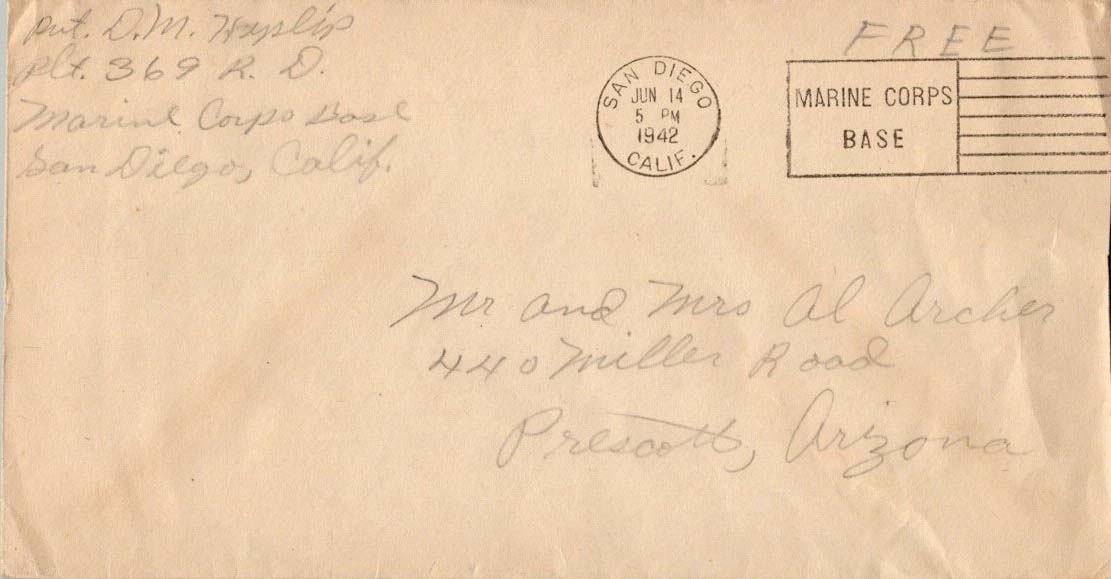 Pvt. D. M.
Plt. 369 R. D.
Marine Corps Base
San Diego, Calif.
FREE
SAN DIEGO
JUN 14
5 PM
1942
CALIF.
MARINE CORPS
BASE
Mr and Mrs Al Archer
440 Miller Road
Prescott, Arizona